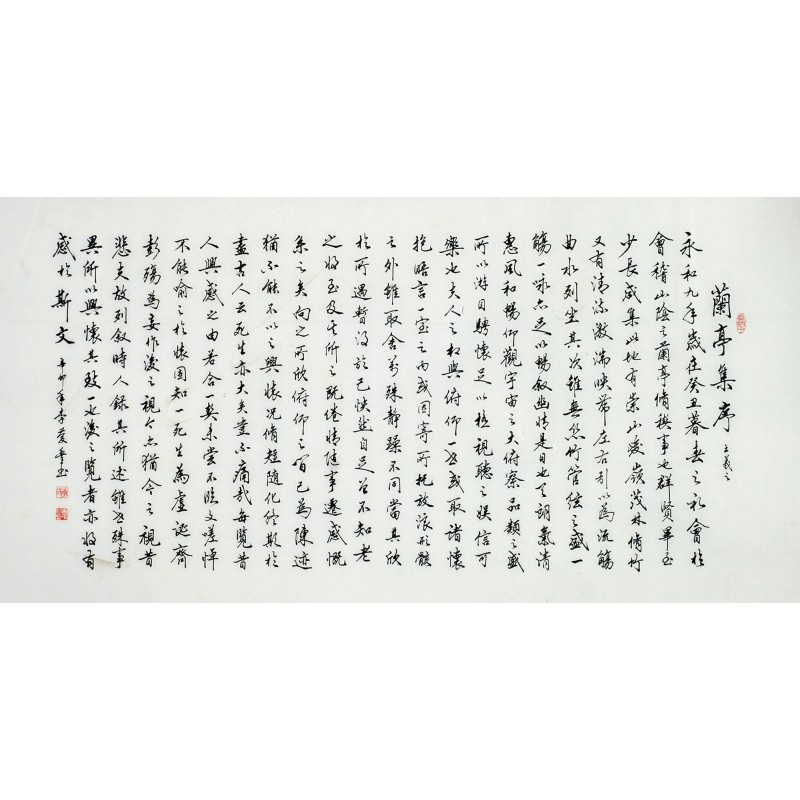 蘭亭集序
王羲之
永和九年歲在癸丑暮春之初會於
會稽山陰之蘭亭脩稧事也群賢畢至
少長咸集此地有崇山峻嶺茂林脩竹
又有清流激湍暎帶左右引以為流觴
曲水列坐其次雖無絲竹管弦之盛一
觴一詠亦足以暢叙幽情是日也天朗氣清
惠風和暢仰觀宇宙之大俯察品類之盛
所以游目騁懷足以極視聽之娛信可
樂也夫人之相與俯仰一世或取諸懷
抱晤言一室之內或因寄所托放浪形骸
之外雖取舍萬殊靜躁不同當其欣
於所遇暫得於己怏然自足曾不知老
之將至及其所之既倦情隨事遷感慨
系之矣向之所欣俯仰之間已為陳迹
猶不能不以之興懷況脩短隨化終期於
盡古人云死生亦大矣豈不痛哉每覽昔
人興感之由若合一契未嘗不臨文嗟悼
不能喻之於懷固知一死生為虛誕齊
彭殤為妄作後之視今亦猶今之視昔
悲夫故列敘時人錄其所述雖世殊事
異所以興懷其致一也後之覽者亦將有
感於斯文
辛卯年李愛平書